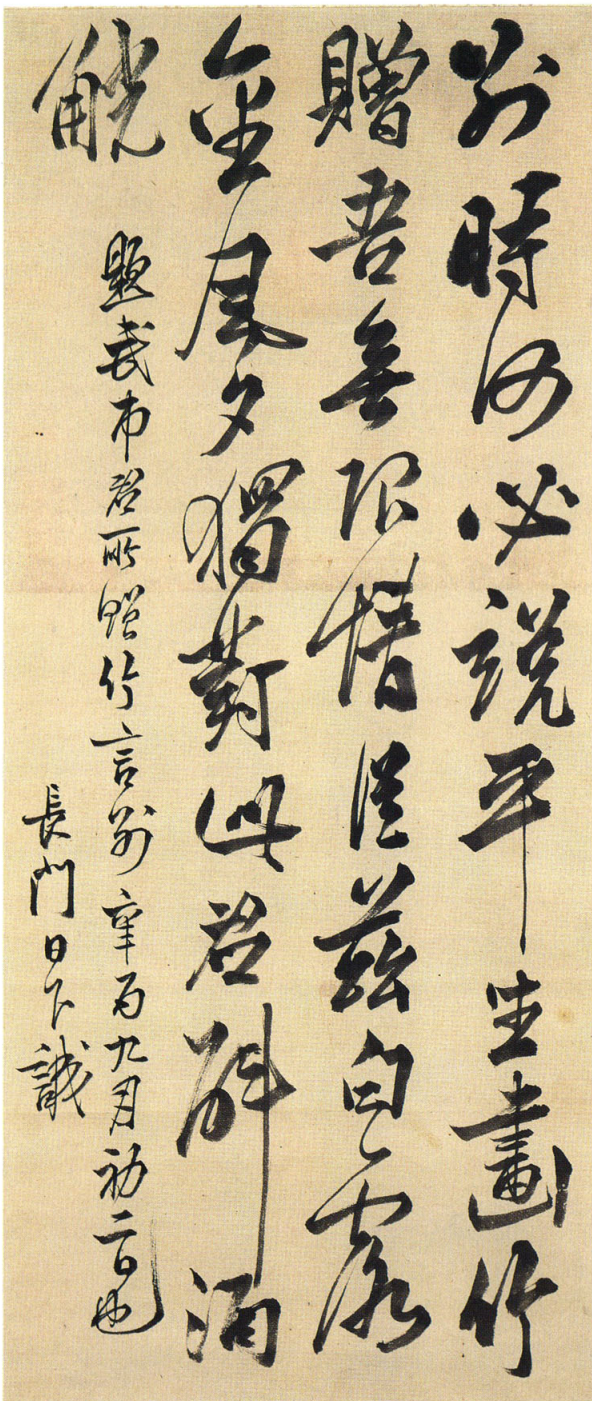 別時何必説平生畫竹
贈吾無限情從茲白露
金風夕獨對此君斟酒
觥
題武市君所贈竹言別辛酉九月初二日也
長門日下誠